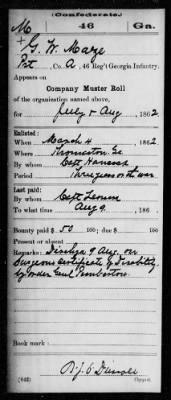 (Confederate.)
M 46 Ga.
G. W. Maze
Pvt, Co. A, 46 Reg't Georgia Infantry.
Appears on
Company Muster Roll
of the organization named above,
for July & Aug, 1862
Enlisted:
When March 4, 1862
Where Thomaston Ga.
By whom Capt
Period Three years or the war
Last paid:
By whom Capt
To what time Aug 9, 186
Bounty paid $ 50 100; due $ 100
Present or absent
Remarks: Discharg 9 Aug. on
Surgeons certificate of disability
by order Genl Pemberton
Book mark:
(642) Copyist.